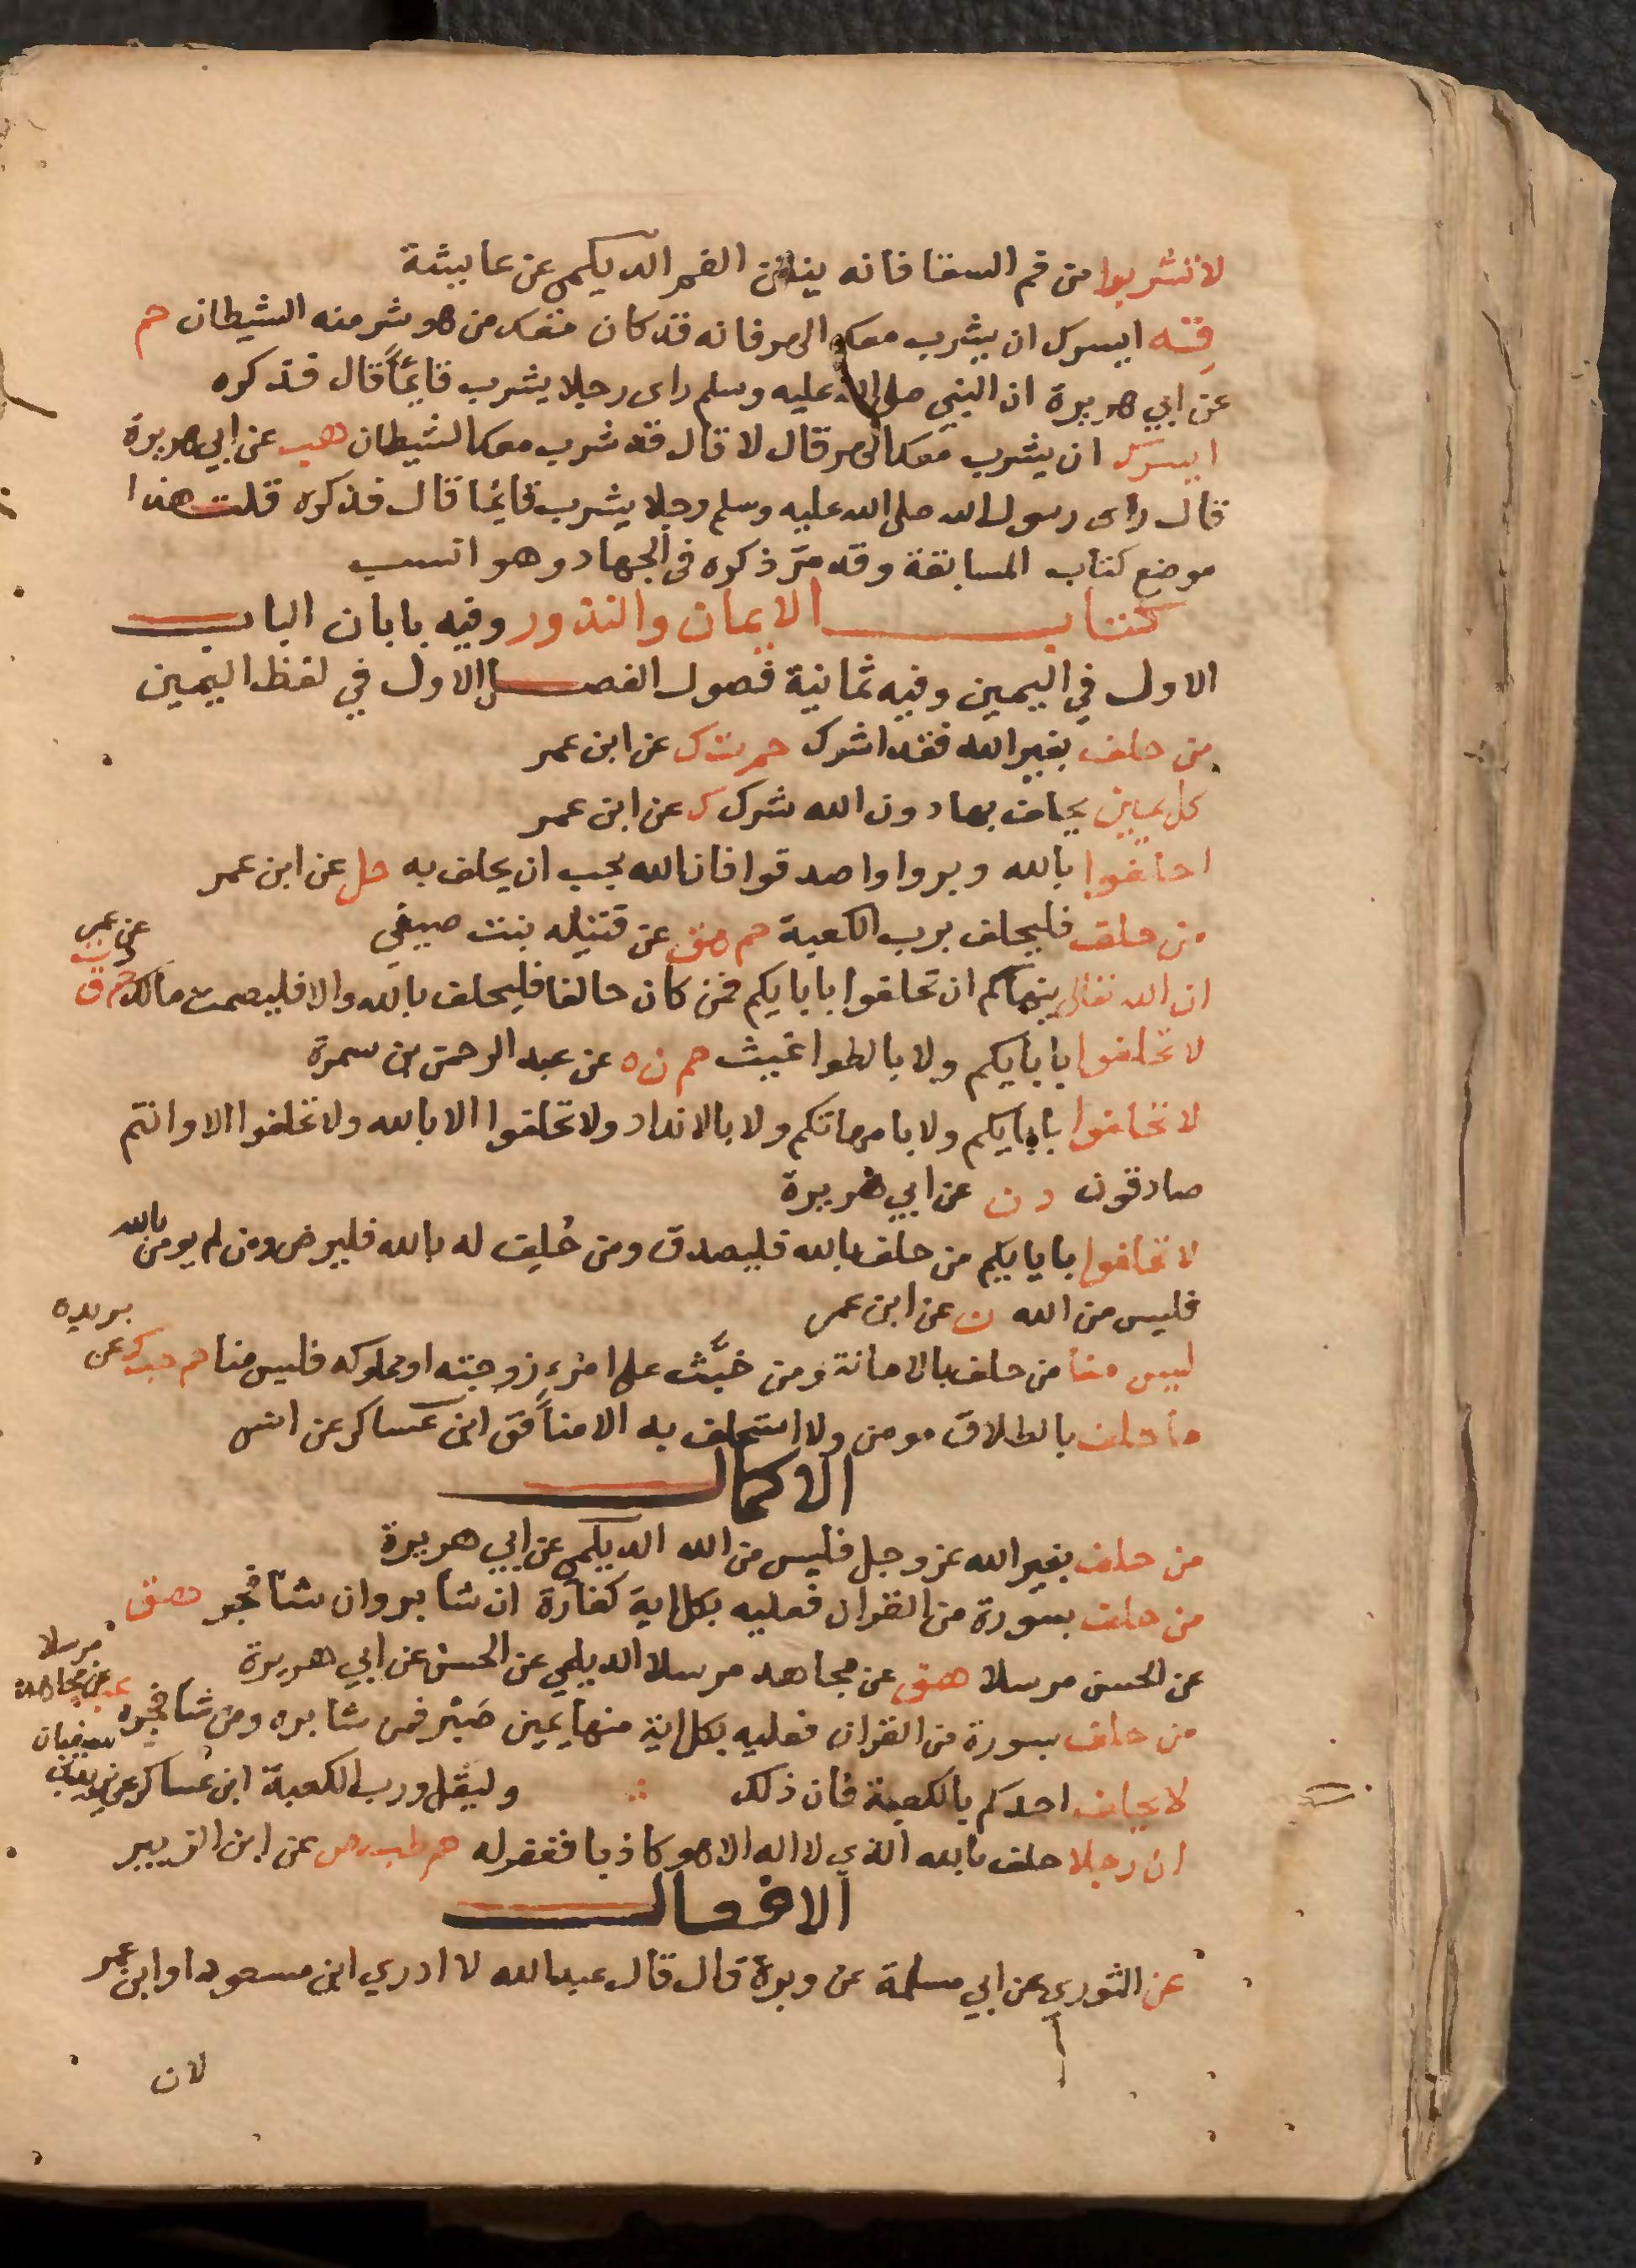 لا تشربوا من فم السقا فانه ينتن الفم الديلمي عن عايشة
قه ايسرك ان يشرب معك الهر فانه قد كان معك من هو شر منه الشيطان حم
عن ابي هريرة ان النبي صلى الله عليه وسلم راى رجلا يشرب قايماً قال فذكره
ايسرك ان يشرب معك الهر قال لا قال قد شرب معك الشيطان هب عن ابي هريرة
قال راى رسول الله صلى الله عليه وسلم رجلا يشرب قايما قال فذكره قلت هذا
موضع كتاب المسابقة وقد مرّ ذكره في الجهاد وهو انسب
كتاب الايمان والنذور وفيه بابان الباب
الاول في اليمين وفيه ثمانية فصول الفصل الاول في لفظ اليمين
من حلف بغير الله فقد اشرك حم ت ك عن ابن عمر
كل يمين يحلف بها دون الله شرك ك عن ابن عمر
احلفوا بالله وبروا واصدقوا فان الله يحب ان يحلف به حل عن ابن عمر
من حلف فليحلف برب الكعبة حم هق عن قتيله بنت صيفي
ان الله تعالى ينهاكم ان تحلفوا بابايكم فمن كان حالفا فليحلف بالله والا فليصمت مالك حم ق
عن عمر
لا تحلفوا بابايكم ولا بالطواغيث حم ن ه عن عبد الرحمن بن سمرة
لا تحلفوا بابايكم ولا بامهاتكم ولا بالانداد ولا تحلفوا الا بالله ولا تحلفوا الا وانتم
صادقون د ن عن ابي هريرة
لا تحلفوا بابايكم من حلف بالله فليصدق ومن حُلِف له بالله فليرض ومن لم يومن بالله
فليس من الله ه عن ابن عمر
ليس منا من حلف بالامانة ومن خبَّث على امرء زوجته او مملوكه فليس منا حم حب ك عن
بريده
ما حلف بالطلاق مومن ولا استحلف به الا منافق ابن عساكر عن انس
الاكمال
من حلف بغير الله عز وجل فليس من الله الديلمي عن ابي هريرة
من حلف بسورة من القران فعليه بكل اية كفارة ان شا بر وان شا فجر هق
عن الحسن مرسلا هق عن مجاهد مرسلا الديلمي عن الحسن عن ابي هريرة
من حلف بسورة من القران فعليه بكل اية منها يمين صَبْر فمن شا بره ومن شا فجره عب عن مجاهد
مرسلا
لا يحلف احدكم بالكعبة فان ذلك وليقل ورب الكعبة ابن عساكر عن يزيد بن
سفيان
ان رجلا حلف بالله الذي لا اله الا هو كاذبا فغفر له حم طب ص عن ابن الزبير
الافعال
عن الثوري عن ابي سلمة عن وبرة قال قال عبد الله لا ادري ابن مسعود او ابن عمر
لان